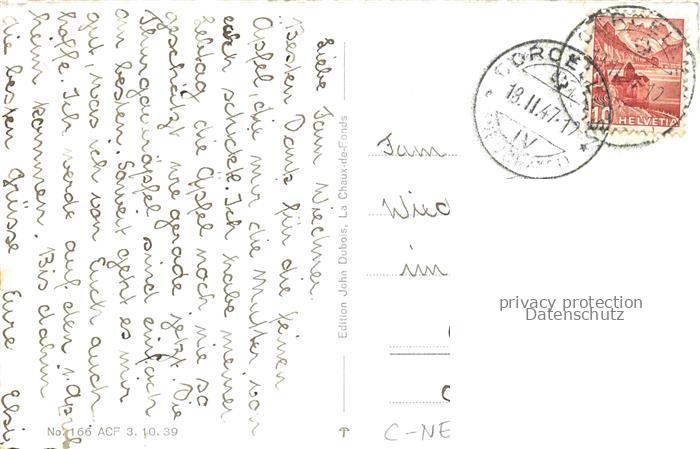 Liebe Fam Wiechner.
Besten Dank für die feinen
Äpfel die mir die Mutter von
euch schickte. Ich habe meiner
Lebtag die Äpfel noch nie so
geschätzt wie gerade jetzt. Die
Thurgaueräpfel sind einfach
am besten. Soweit geht es mir
gut, was ich von Euch auch
hoffe. Ich werde auf den 1. April
heim kommen. Bis dahin
die besten Grüsse Eure Elsi
Edition John Dubois, La Chaux-de-Fonds
No. 166 ACF 3. 10. 39
Fam
Wiec
im
C-NE
18.II.47-12
IV
10 HELVETIA
privacy protection
Datenschutz